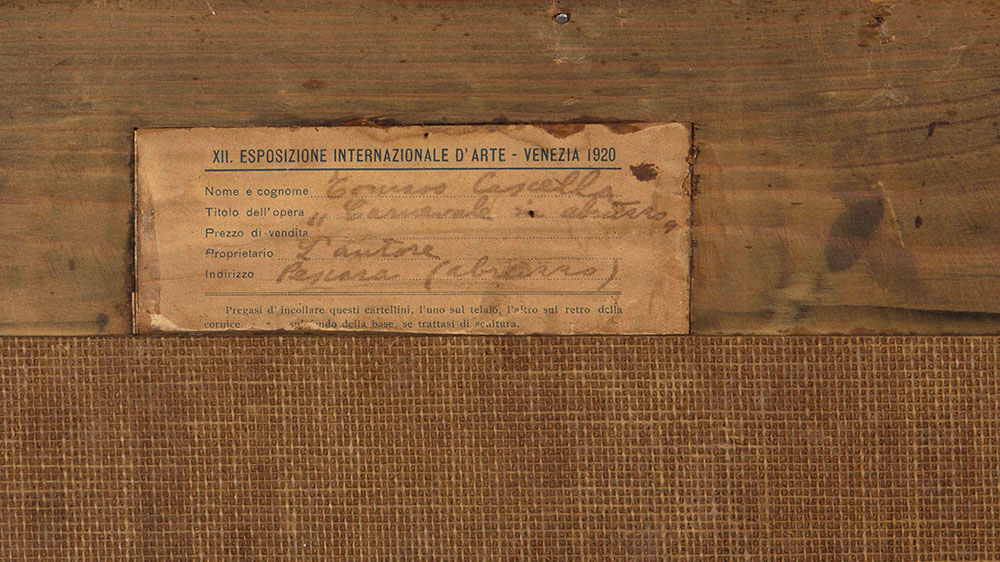 XII. ESPOSIZIONE INTERNAZIONALE D'ARTE - VENEZIA 1920
Nome e cognome Tommaso Cascella
Titolo dell'opera „ Carnevale in abruzzo „
Prezzo di vendita
Proprietario L'autore
Indirizzo Pescara (abruzzo)
Pregasi d' incollare questi cartellini, l'uno sul telaio, l'altro sul retro della
cornice, sul fondo della base, se trattasi di scultura.